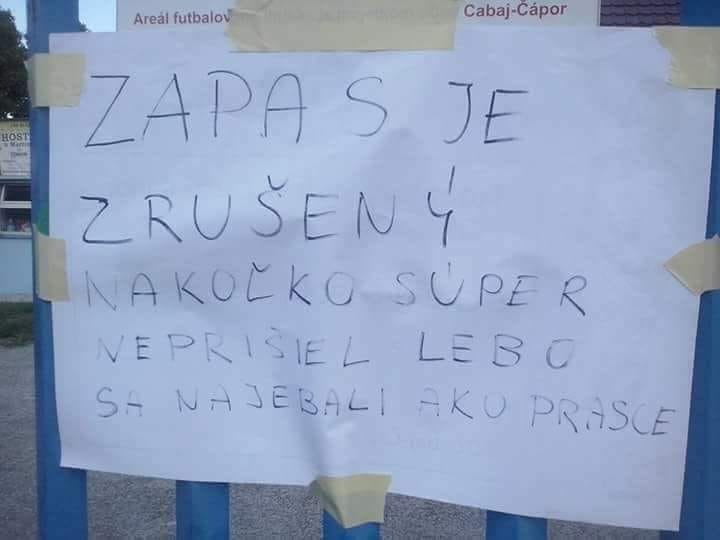 Areál futbalov
Cabaj-Čápor
HOST
ZAPAS JE
ZRUŠENÝ
NAKOĽKO SÚPER
NEPRIŠIEL LEBO
SA NAJEBALI AKU PRASCE